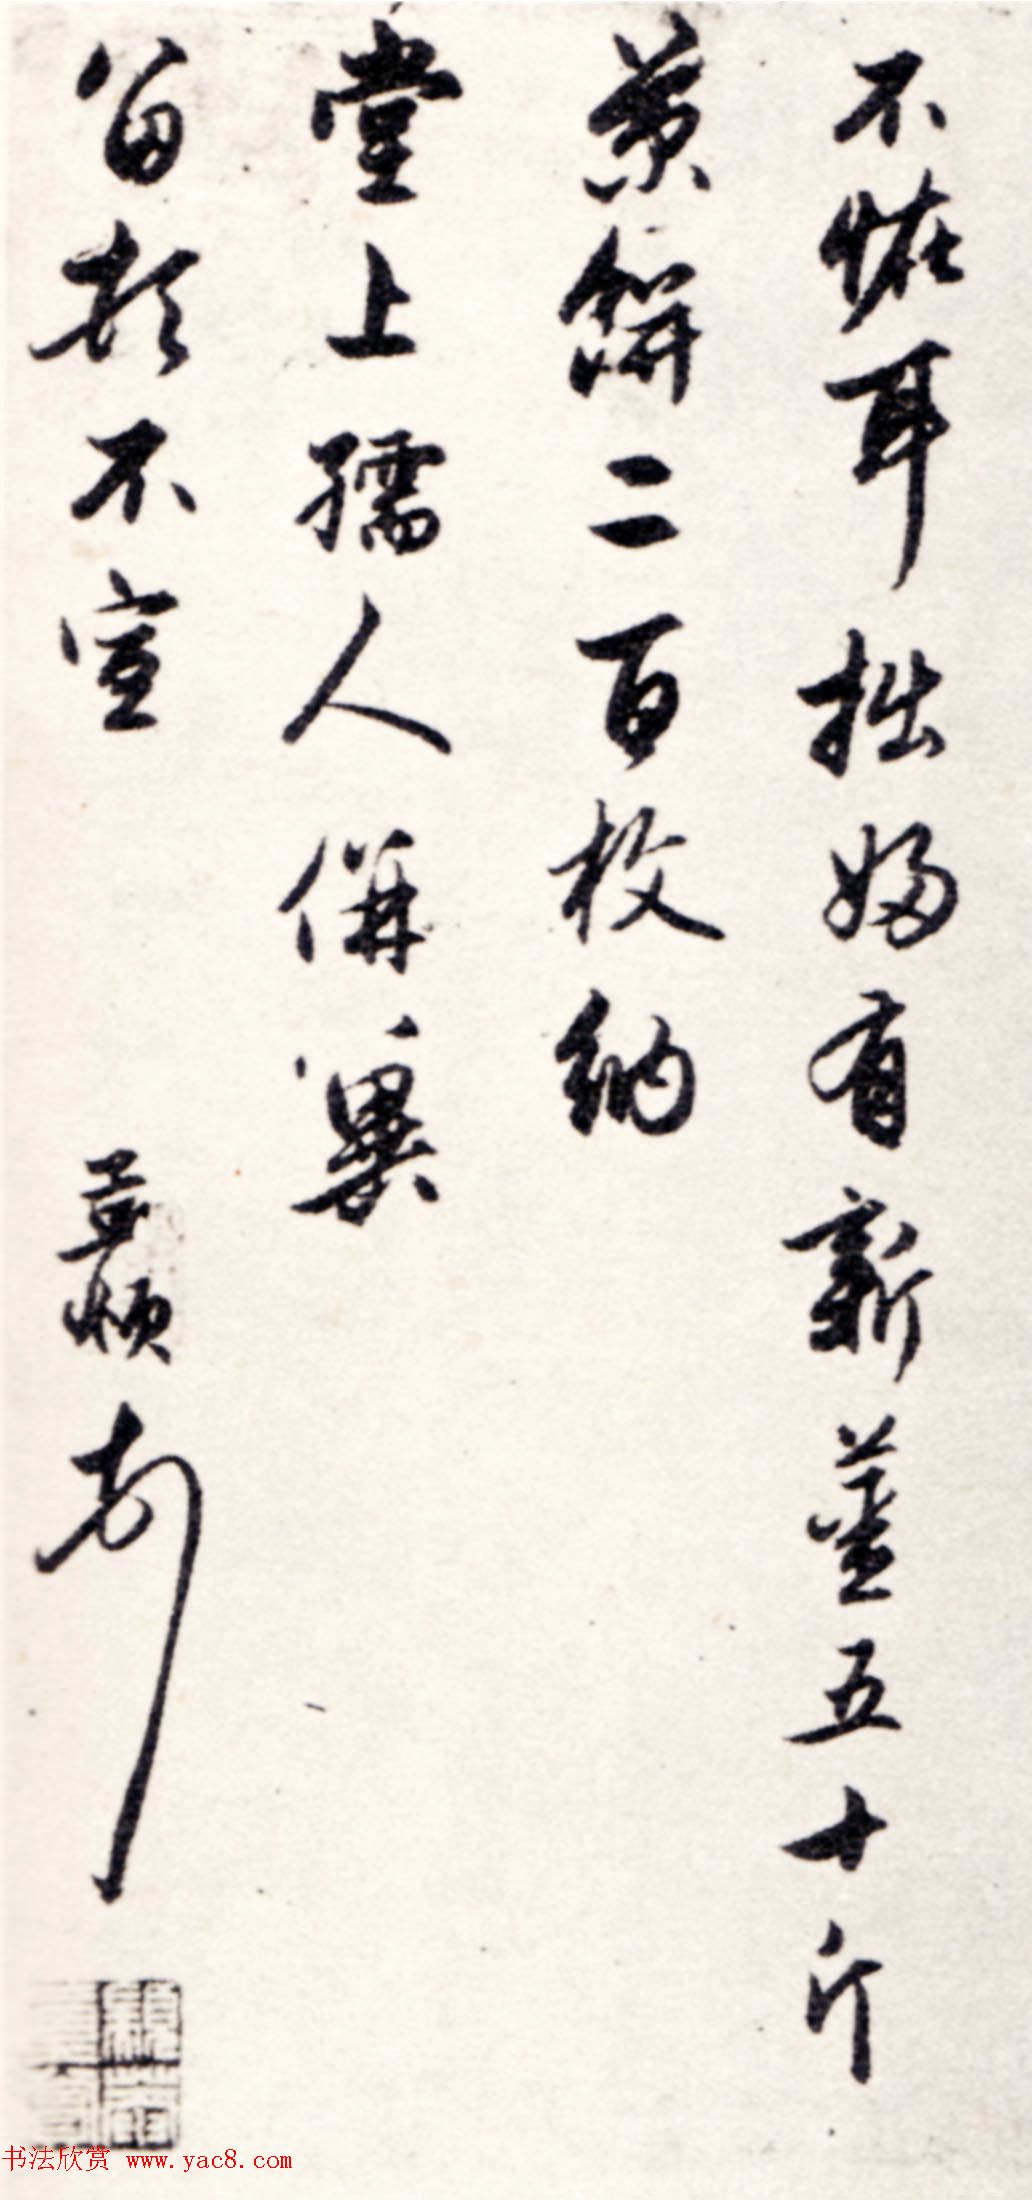 不恠耳拙婦有新薑五十斤
餅二百枚納
堂上孺人併冀
留不宣
孟頫
书法欣赏 www.yac8.com